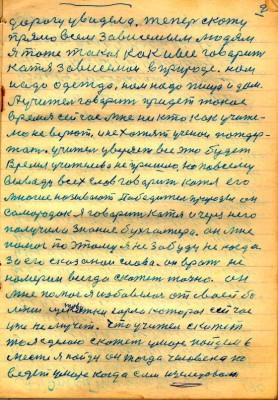 2
дорогу увидела, теперь скажу
прямо всем зависимым людям
я тоже такая как и все говорит
Катя зависемая в природе. нам
надо одежда, нам надо пища и дом.
А учител говорит придет такое
время сейчас мне ни кто как учите-
лю не верют, и не хотят учения поддер-
жат. учител уверяет все это будет
Время учителево не пришло, но по всему
выводу всех слов говарит катя его
многие називают Победител природы он
самородок Я говарит Катя и через него
получила знание бухгалтера, он мне
помог по этому я не забуду не когда
за его сказаная слова. он врат не
намерин всегда скажет точно. он
мне помог я избавилас от своей бо-
лезни горла которая сейчас
уже не мучит. что учител скажет
то я делаю скажет умырат пойдем в
месте я пойду он тогда человека не
ведет умират когда сам